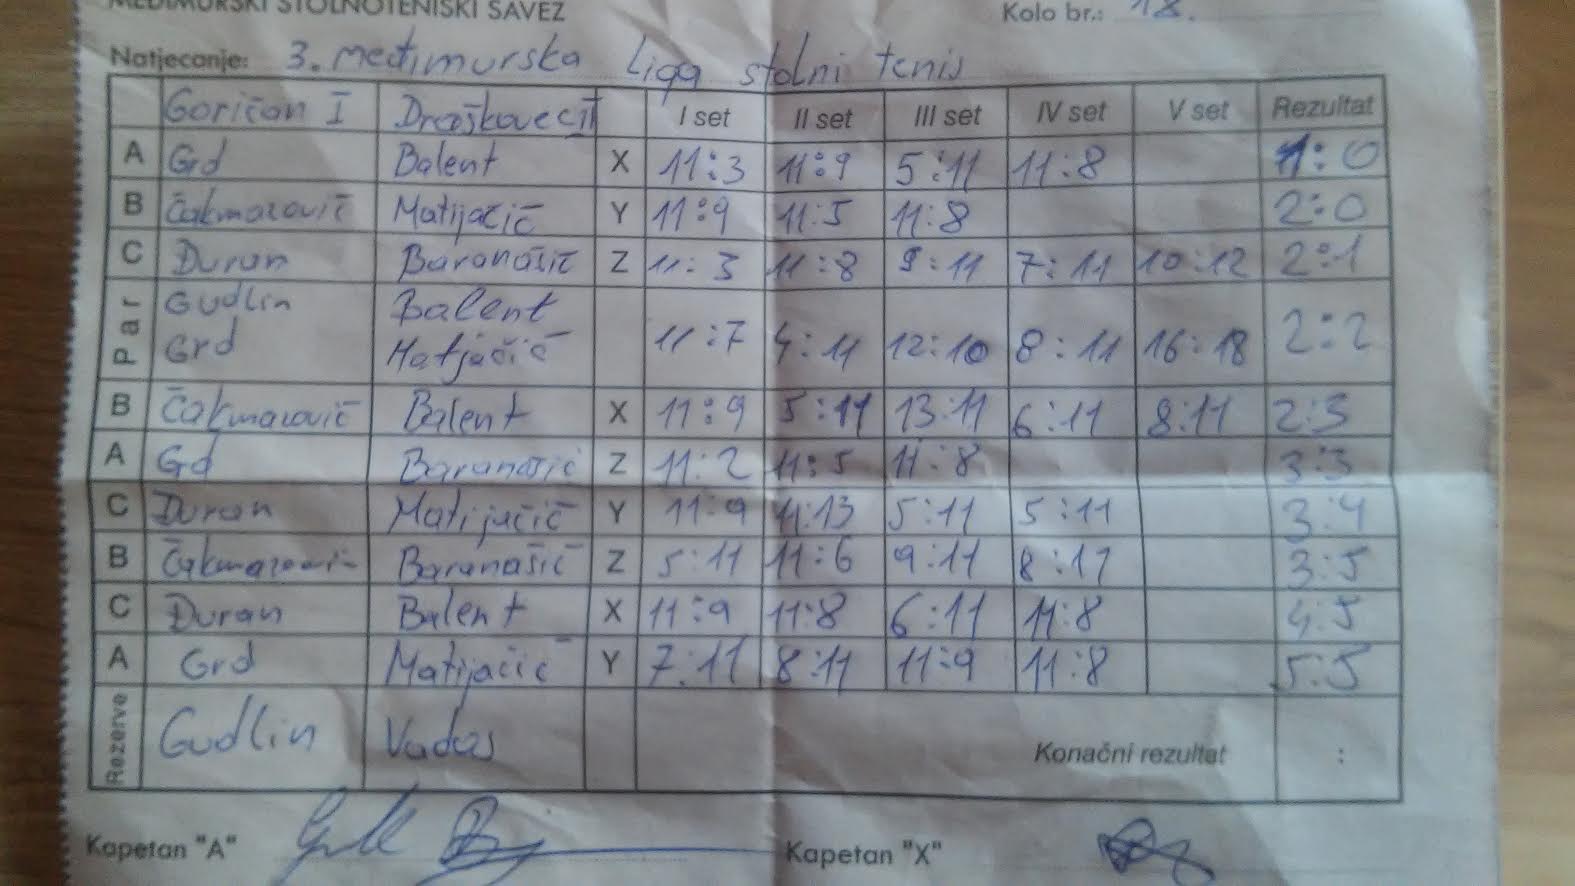 MEĐIMURSKI STOLNOTENISKI SAVEZ
Kolo br.: 18.
Natjecanje: 3. međimurska liga stolni tenis
Goričan I Draškovec II I set II set III set IV set V set Rezultat
A Grd Balent X 11:3 11:9 5:11 11:8 1:0
B Čakmazovič Matijačič Y 11:9 11:5 11:8 2:0
C Đuran Baranašič Z 11:3 11:8 9:11 7:11 10:12 2:1
Par Gudlin Balent
Grd Matjačič 11:7 4:11 12:10 8:11 16:18 2:2
B Čakmazovič Balent X 11:9 5:11 13:11 6:11 8:11 2:3
A Gd Baranašić Z 11:2 11:5 11:8 3:3
C Đuran Matijačič Y 11:9 11:13 5:11 5:11 3:4
B Baranašič Z 5:11 11:6 9:11 8:11 3:5
C Đuran Balent X 11:9 11:8 6:11 11:8 4:5
A Grd Matijačić Y 7:11 8:11 11:9 11:8 5:5
Rezerve Gudlin Vadas Konačni rezultat :
Kapetan "A" Kapetan "X"